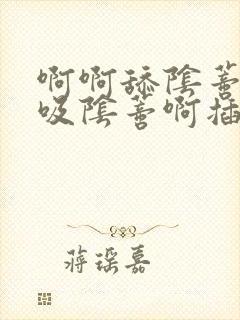 啊啊舔陰蒂
吸陰蒂啊插
蔣琛嘉